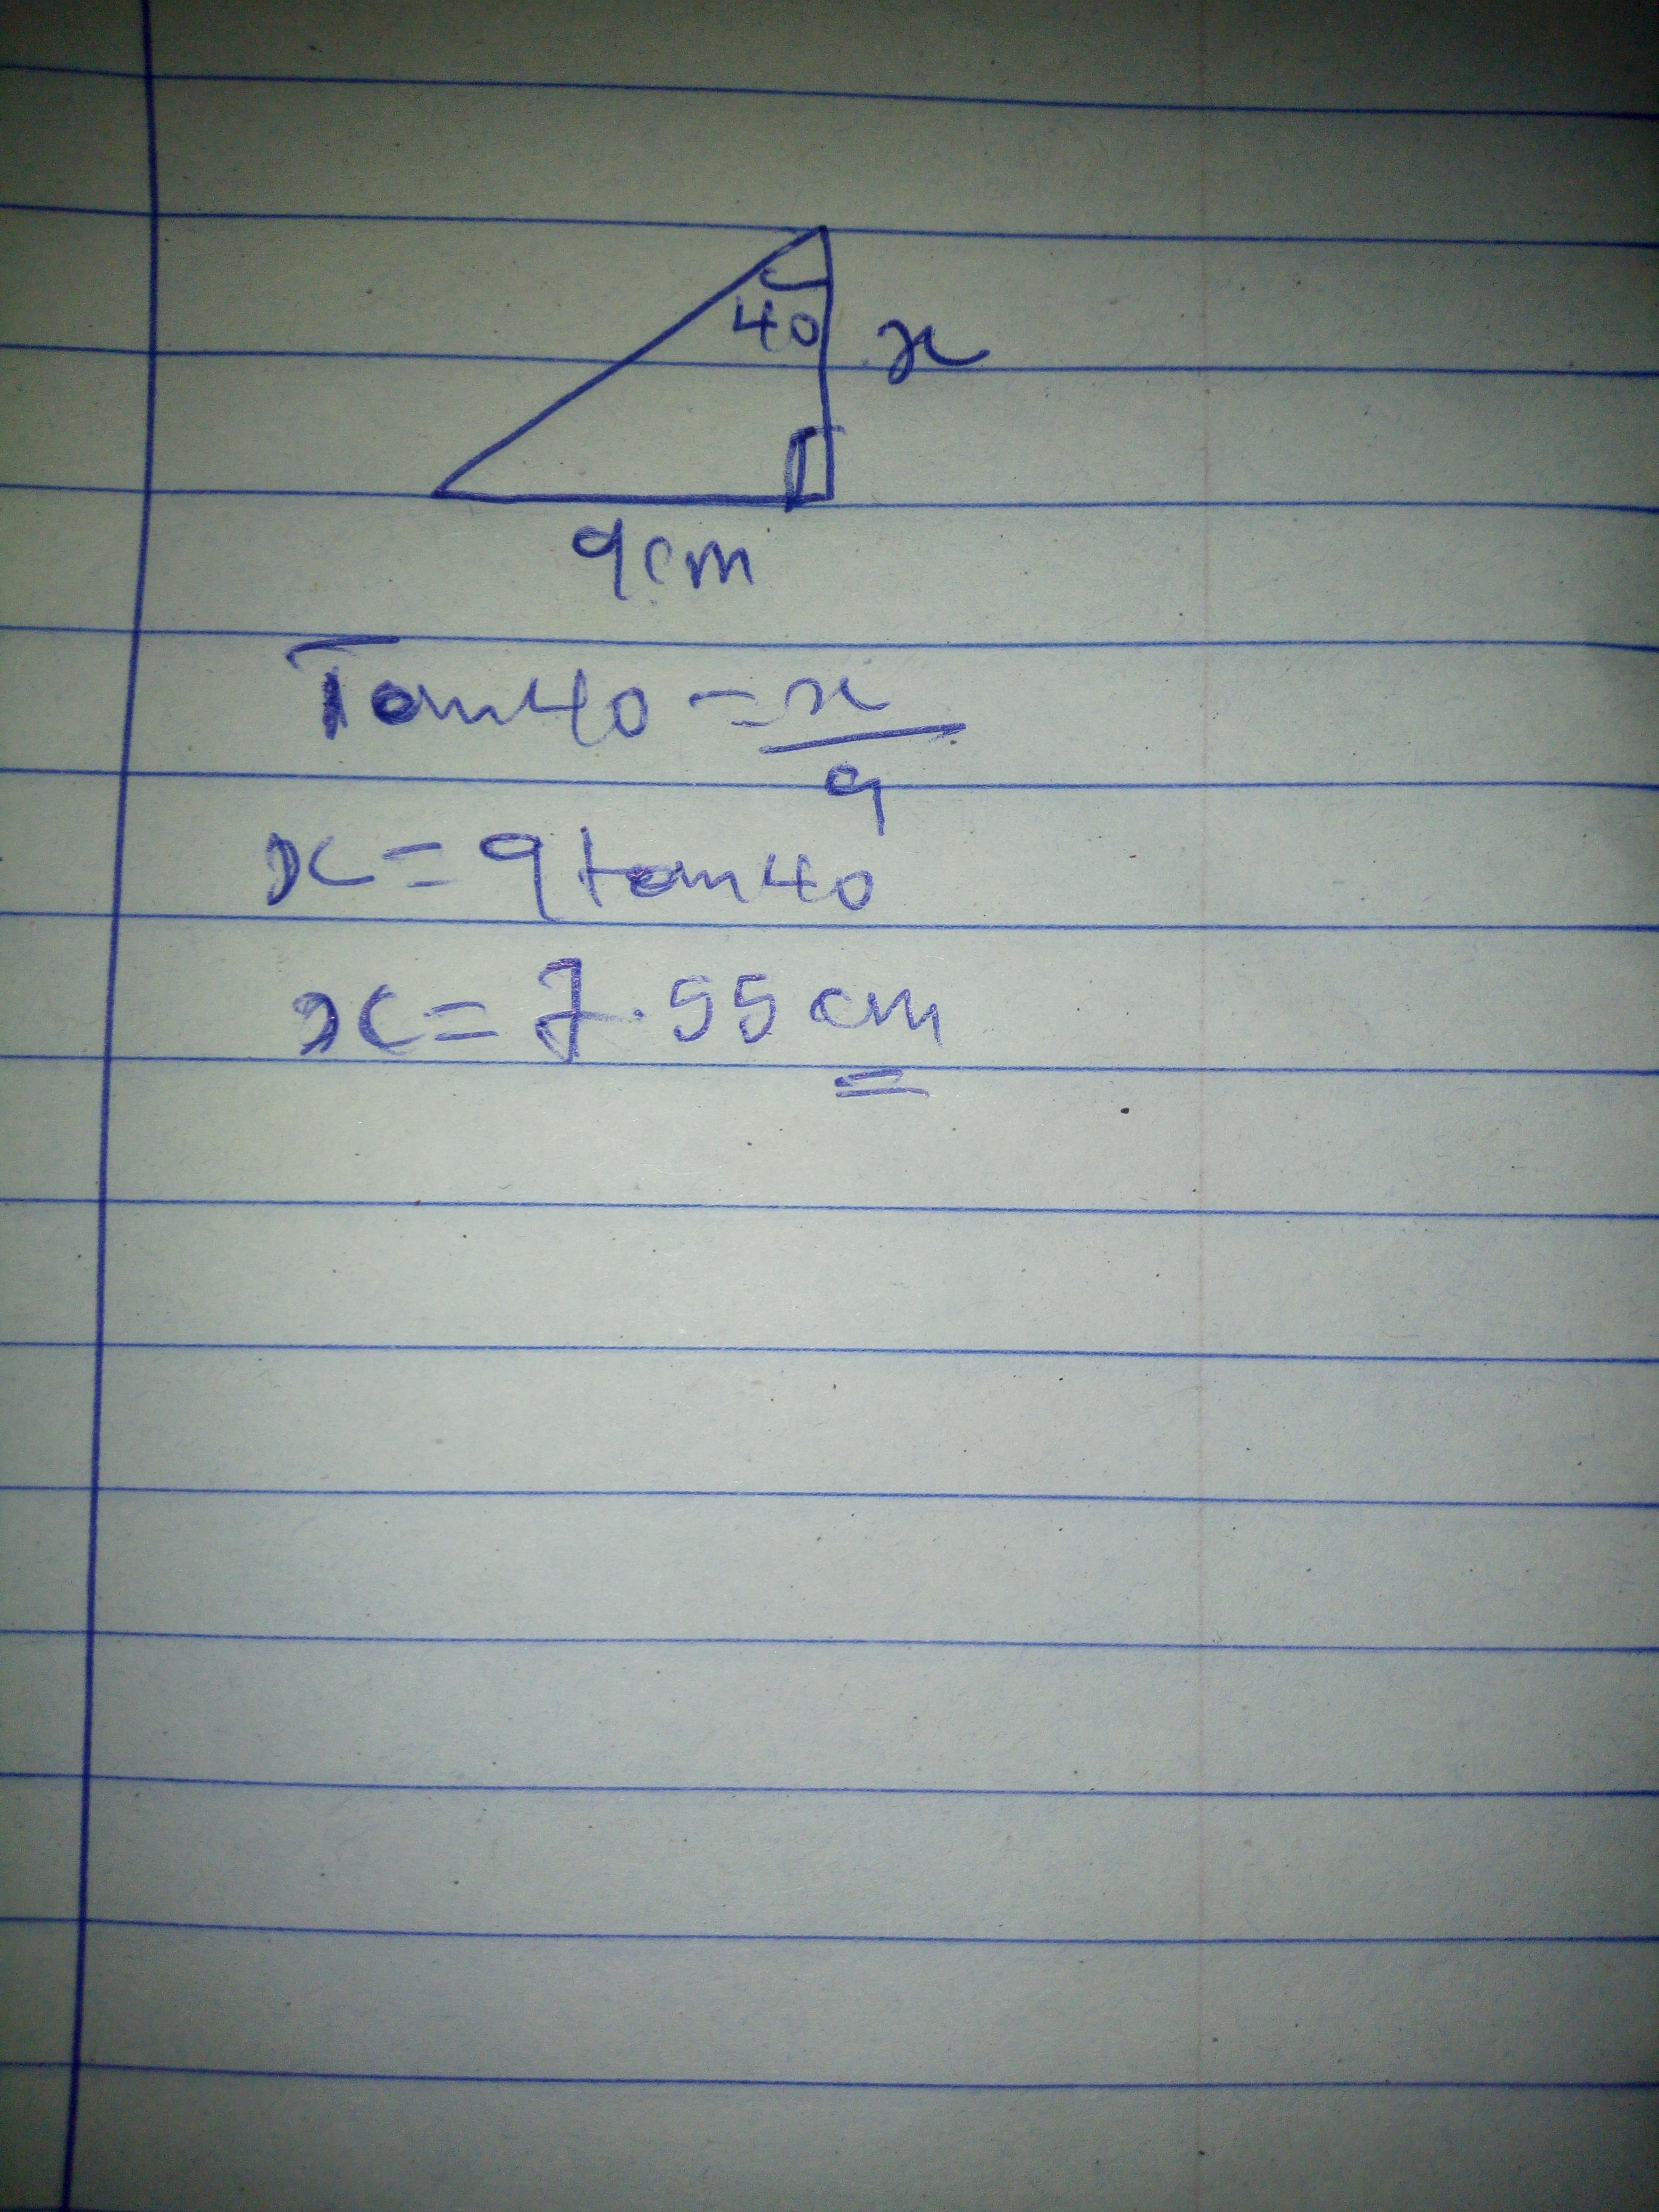 40 x
9cm
Tan40 = x/9
x = 9tan40
x = 7.55cm